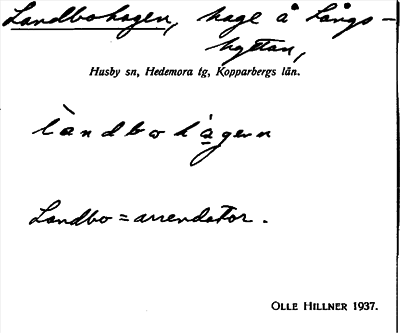 Landbohagen, hage å Långs-
hyttan,
Husby sn, Hedemora tg, Kopparbergs län.
làndbohágenn
Landbo = arrendator.
OLLE HILLNER 1937.